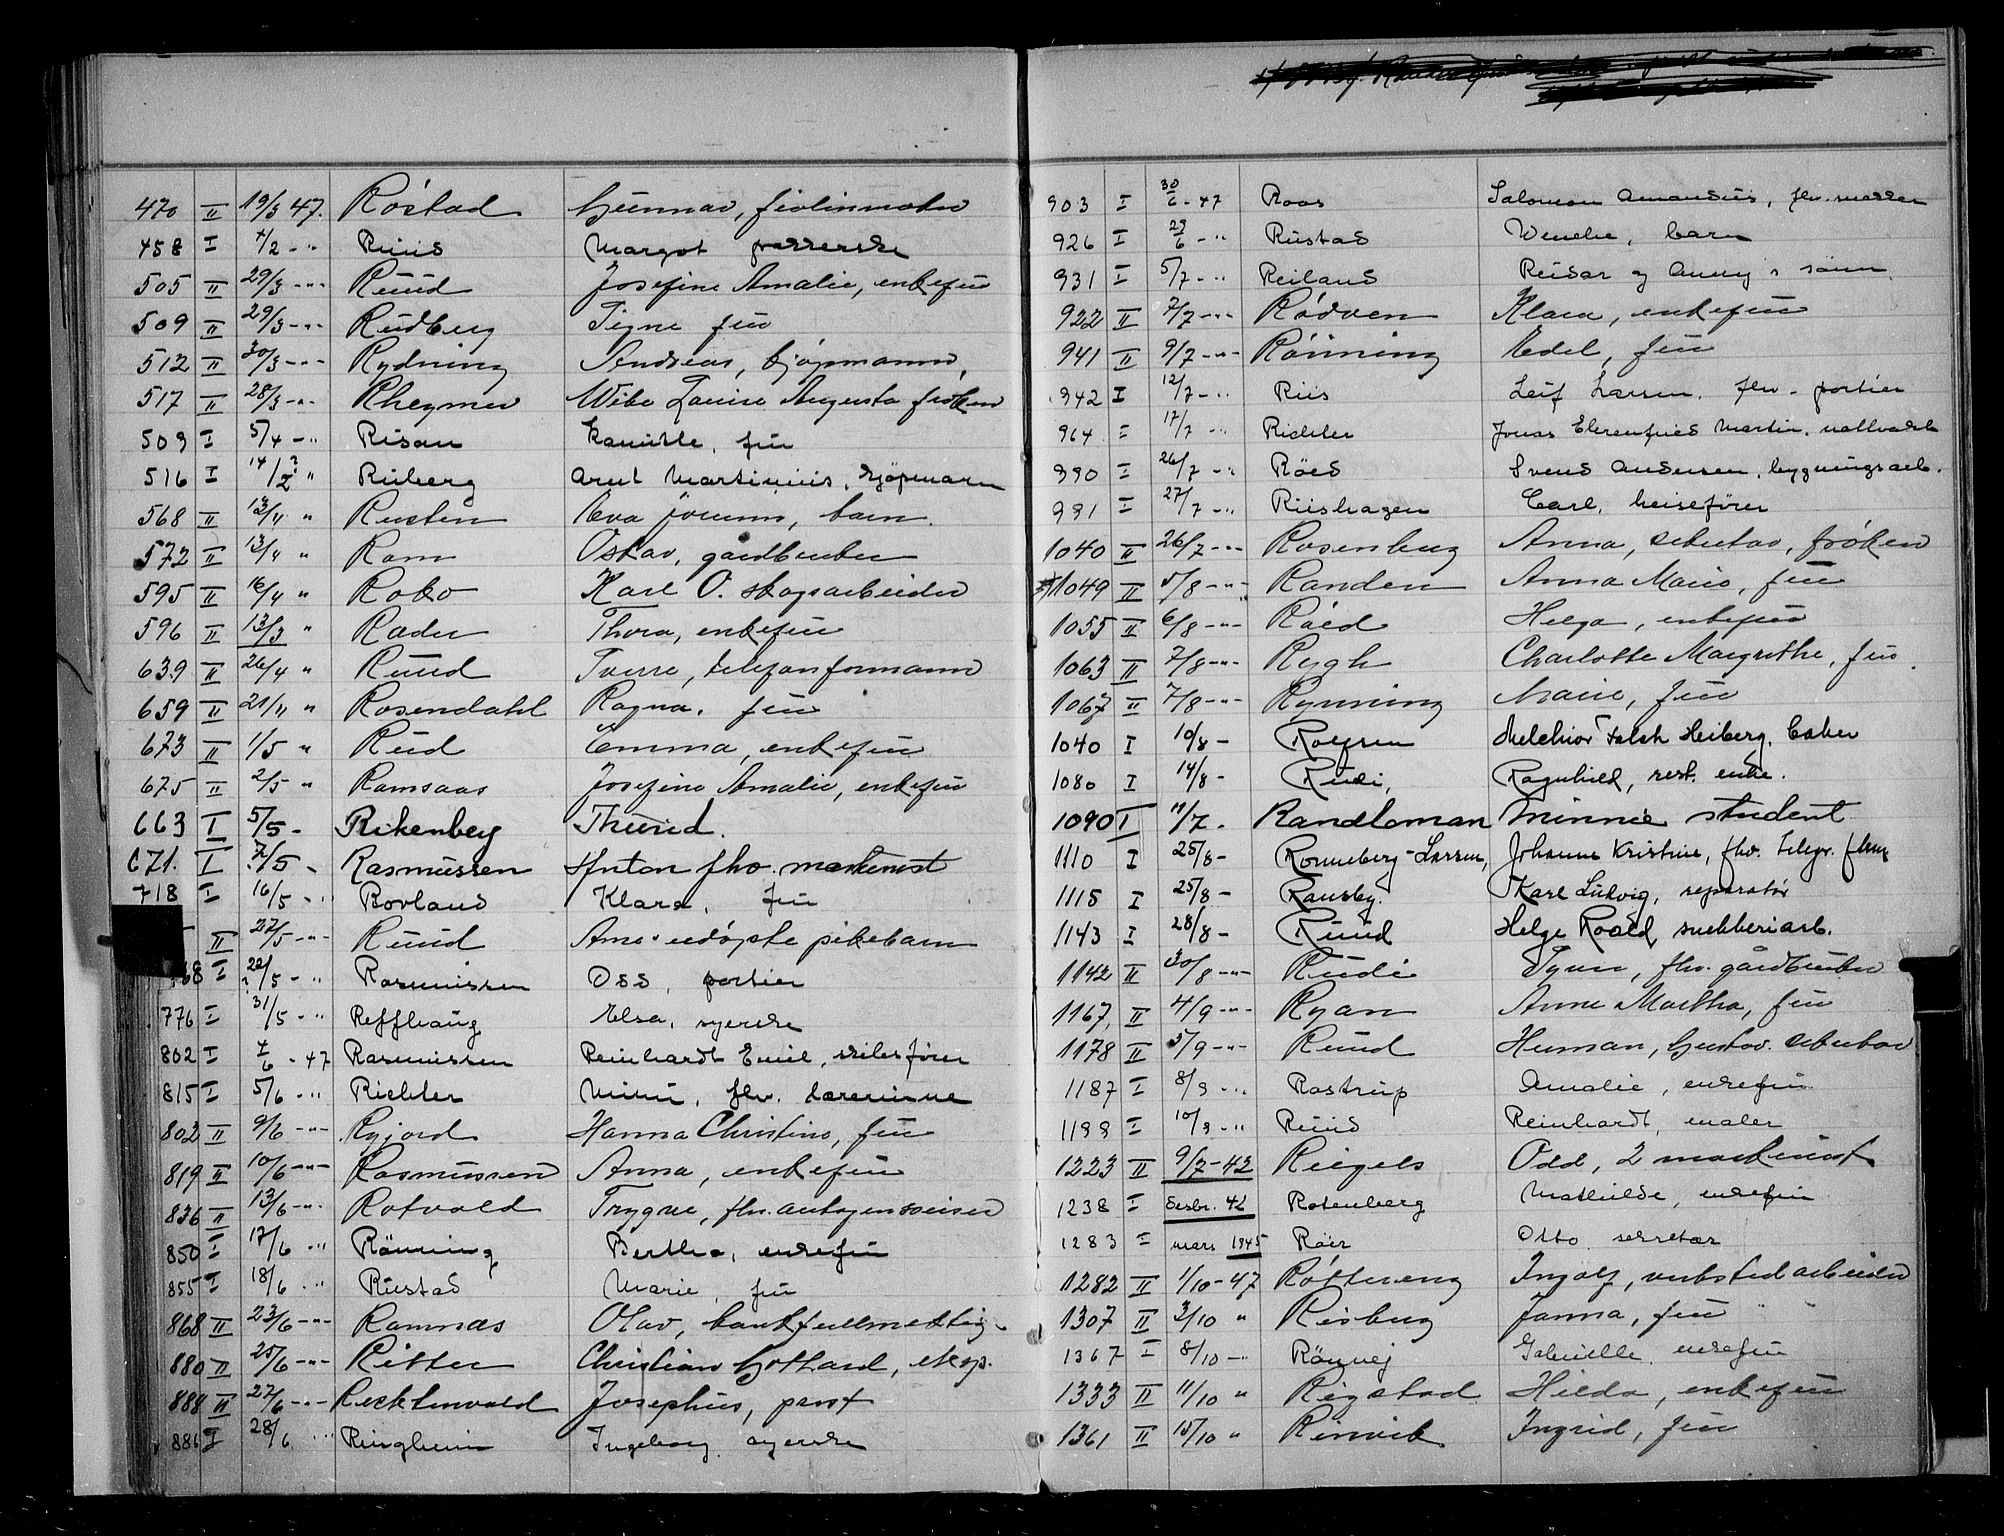 470 II 19/3 47. Röstad Gunnar, fiolinmaker
458 I 4/2 - " Ruud Margot
505 II 29/3 - " - Ruud Josefine Amalie, enkefru
509 II 29/3 - " - Rudberg Signe fru
512 II 30/3 - " - Rydning Andreas, kjøpmann,
517 II 28/3 - " - Rheymer Wibe Louise Augusta frøken
509 I 5/4 - " Risan Kamille, fru
516 I 14/2 ? " Ruberg Arnt Martinius, kjøpmann
568 II 13/4 " Rusten Eva Jorunn, barn.
572 II 13/4 " Ram Oskar, gårdbruker
595 II 16/4 " Roko Karl O. skogsarbeider
596 II 13/3 " Rader Thora, enkefru
639 II 26/4 " Ruud Sverre, telefonformann
659 II 21/4 " Rosendahl Ragna, fru
673 II 1/5 " Rud Emma, enkefru
675 II 2/5 " Ramsaas Josefine Amalie, enkefru
663 I 5/5 - Rikenberg Thurid.
671. I 7/5 - Rasmussen Anton fhv. maskinist
718 I 16/5 - " Rovland Klara, fru
II 27/5 - " - Ruud Arne udøpte pikebarn
68 I 22/5 - " Rasmussen Oss, portier
776 I 31/5 - " Reffhaug Elsa, syerske
802 I 4/6 - 47 Rasmussen Reinhardt Emil, skibsfører
815 I 5/6 - " Richter Mimi, fhv. lærerinne
802 II 9/6 - " - Ryjord Hanna Christine, fru
819 II 10/6 - " - Rasmussen Anna, enkefru
836 II 13/6 - " - Rotvold Trygve, fhv. autogensveiser
850 I 17/6 " Rönning Bertha, enkefru
855 I 18/6 - " Rustad Marie, fru
868 II 23/6 - " - Ramnæs Olav, bankfullmektig
880 II 25/6 - " - Ritter Christian Gothard, eksp.
888 II 27/6 - " - Recktenvald Josephus, prest
886 I 28/6 - " Ringheim Ingeborg syerske
903 I 30/6 - 47 Roos Salomon Amandus, fhv. snekker
926 I 29/6 - " Rustad Wenche, barn
931 I 5/7 - " Reiland Reidar og Anny's sønn
922 II 7/7 - " - Rødven Klara, enkefru
941 II 9/7 - " - Rönning Edel, fru
942 I 12/7 - " Riis Leif Larsen, fhv. portier
964 I 17/7 - " Richter Jonas Ehrenfried Martin, nattvakt
990 I 26/7 - " Röed Svend Andersen, bygningsarb.
991 I 27/7 - " Riishagen Carl, heisefører
1040 II 26/7 - " - Rosenberg Anna, sekretær, frøken
1049 II 5/8 - " - Randen Anna Marie, fru
1055 II 6/8 - " - Röed Helga, enkefru
1063 II 7/8 - " - Rygh Charlotte Margrethe, fru
1067 II 7/8 - " - Rynning Marie, fru
1040 I 10/8 - Rolfsen Melchior Falch Heiberg, baker
1080 I 14/8 - Rudi, Ragnhild, rest. enke.
1090 I 11/7. Randloman Minnie student
1110 I 25/8 - Ronneberg-Larsen, Johanne Kristine, fhv. telegr. fhm
1115 I 25/8 - Ransby. Karl Ludvig, reparatør
1143 I 28/8 - Ruud Helge Roald, snekkeriarb.
1142 II 30/8 - " - Rudi Syver, fhv. gårdbruker
1167, II 4/9 - " - Ryan Anne Martha, fru
1178 II 5/9 - " - Ruud Herman, Gustav. sekretær
1187 I 8/9 - " Rostrup Amalie, enkefru
1199 I 10/9 - " Ruud Reinhardt, maler
1223 II 9/7 - 42 Riegels Odd, 2 maskinist
1238 I Desbr. 42 Rotenberg Mathilde, enkefru
1283 I mars 1945 Röer Otto sekretær
1282 II 1/10 - 47 Røttereng Ingolf, verkstedarbeider
1307 II 3/10 " Risberg Janna, fru
1367 I 8/10 - " Rönnej Gabrielle, enkefru
1333 II 11/10 " Rigstad Hilda, enkefru
1361 II 15/10 " Rinvik Ingrid, fru